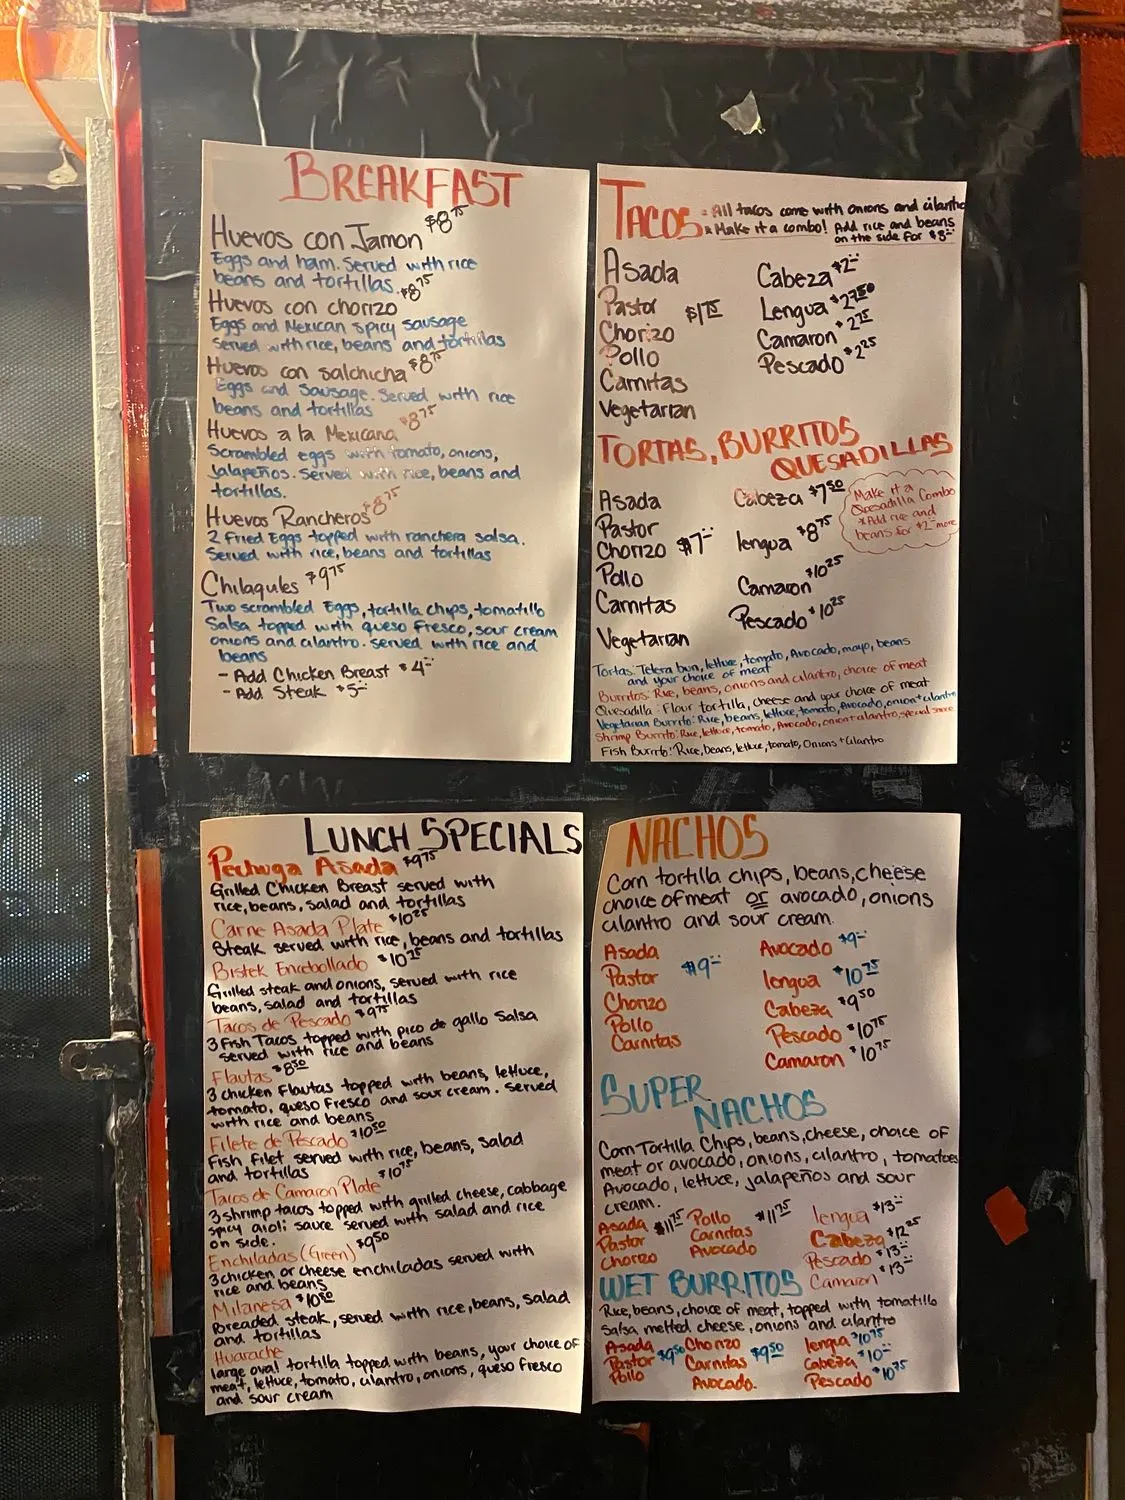 BREAKFAST
Huevos con Jamon $8.75
Eggs and ham. Served with rice
beans and tortillas.
Huevos con chorizo $8.75
Eggs and Mexican spicy sausage
Served with rice, beans and tortillas
Huevos con salchicha $8.75
Eggs and Sausage. Served with rice
beans and tortillas
Huevos a la Mexicana $8.75
Scrambled eggs with tomato, onions,
Jalapeños. Served with rice, beans and
tortillas.
Huevos Rancheros $8.75
2 Fried Eggs topped with ranchera salsa.
Served with rice, beans and tortillas
Chilaqules $9.75
Two scrambled Eggs, tortilla chips, tomatillo
Salsa topped with queso fresco, sour cream
onions and cilantro. served with rice and
beans
- Add Chicken Breast $4-
- Add Steak $5-
TACOS * All tacos come with onions and cilantro
* Make it a combo! Add rice and beans
on the side for $3-
Asada
Pastor $1.75
Chorizo
Pollo
Carnitas
Vegetarian
Cabeza $2-
Lengua
Camaron $2.75
Pescado $2.25
TORTAS, BURRITOS
QUESADILLAS
Asada
Pastor
Chorizo $7-
Pollo
Carnitas
Vegetarian
Cabeza $7.50
lengua $8.75
Camaron $10.25
Pescado $10.25
Make it a
Quesadilla Combo
*Add rice and
beans for $2- more
Tortas: Telera bun, lettuce, tomato, Avocado, mayo, beans
and your choice of meat
Burritos: Rice, beans, onions and cilantro, choice of meat
Quesadilla: Flour tortilla, cheese and your choice of meat
Vegetarian Burrito: Rice, beans, lettuce, tomato, Avocado, onion+cilantro
Shrimp Burrito: Rice, lettuce, tomato, Avocado, onion+cilantro, special sauce
Fish Burrito: Rice, beans, lettuce, tomato, Onions + Cilantro
LUNCH SPECIALS
Pechuga Asada $9.75
Grilled Chicken Breast served with
rice, beans, salad and tortillas
Carne Asada Plate $10.25
Steak served with rice, beans and tortillas
Bistek Encebollado $10.75
Grilled steak and onions, served with rice
beans, salad and tortillas
Tacos de Pescado $9.75
3 Fish Tacos topped with pico de gallo Salsa
served with rice and beans
Flautas $8.50
3 chicken Flautas topped with beans, lettuce,
tomato, queso fresco and sour cream. Served
with rice and beans
Filete de Pescado $10.50
Fish Filet served with rice, beans, salad
and tortillas
Tacos de Camaron Plate $10.75
3 shrimp tacos topped with grilled cheese, cabbage
spicy aioli sauce served with salad and rice
on side.
Enchiladas (Green) $9.50
3 chicken or cheese enchiladas served with
rice and beans
Milanesa $10.50
Breaded steak, served with rice, beans, salad
and tortillas
Huarache
large oval tortilla topped with beans, your choice of
meat, lettuce, tomato, cilantro, onions, queso fresco
and sour cream
NACHOS
Corn tortilla chips, beans, cheese
choice of meat or avocado, onions
cilantro and sour cream.
Asada
Pastor $9-
Chorizo
Pollo
Carnitas
Avocado $9-
lengua $10.75
Cabeza $9.50
Pescado $10.75
Camaron $10.75
SUPER
NACHOS
Corn Tortilla Chips, beans, cheese, choice of
meat or avocado, onions, cilantro, tomatoes
Avocado, lettuce, jalapeños and sour
cream.
Asada
Pastor $11.75
Chorizo
Pollo
Carnitas $11.75
Avocado
lengua $13-
Cabeza $12.25
Pescado $13-
Camaron $13-
WET BURRITOS
Rice, beans, choice of meat, topped with tomatillo
Salsa, melted cheese, onions and cilantro
Asada
Pastor $9.50
Pollo
Chorizo
Carnitas $9.50
Avocado.
lengua $10.75
Cabeza $10-
Pescado $10.75